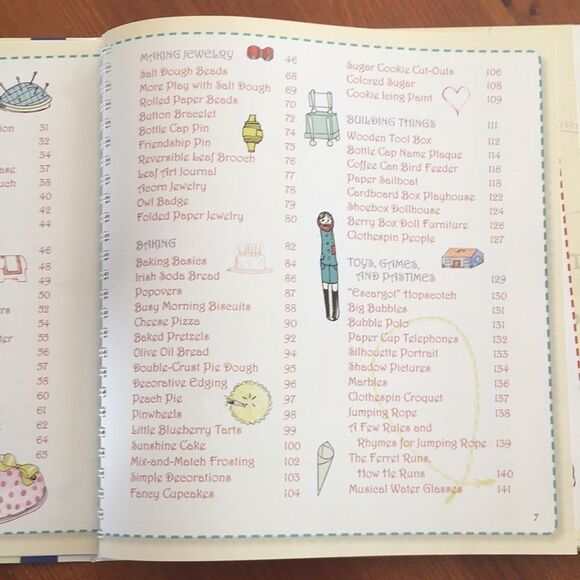 ion 31
32
34
ase 37
uch 38
40
42
44
46
48
49
50
ers 52
54
ter 55
56
60
61
62
64
65
MAKING JEWELRY 46
Salt Dough Beads 68
More Play with Salt Dough 69
Rolled Paper Beads 70
Button Bracelet 72
Bottle Cap Pin 74
Friendship Pin 75
Reversible Leaf Brooch 76
Leaf Art Journal 77
Acorn Jewelry 78
Owl Badge 79
Folded Paper Jewelry 80
BAKING 82
Baking Basics 84
Irish Soda Bread 86
Popovers 87
Busy Morning Biscuits 88
Cheese Pizza 90
Baked Pretzels 92
Olive Oil Bread 94
Double-Crust Pie Dough 95
Decorative Edging 96
Peach Pie 97
Pinwheels 98
Little Blueberry Tarts 99
Sunshine Cake 100
Mix-and-Match Frosting 102
Simple Decorations 103
Fancy Cupcakes 104
Sugar Cookie Cut-Outs 106
Colored Sugar 108
Cookie Icing Paint 109
BUILDING THINGS 111
Wooden Tool Box 112
Bottle Cap Name Plaque 114
Coffee Can Bird Feeder 116
Paper Sailboat 118
Cardboard Box Playhouse 122
Shoebox Dollhouse 124
Berry Box Doll Furniture 126
Clothespin People 127
TOYS, GAMES,
AND PASTIMES 129
"Escargot" Hopscotch 130
Big Bubbles 131
Bubble Polo 131
Paper Cup Telephones 132
Silhouette Portrait 133
Shadow Pictures 134
Marbles 136
Clothespin Croquet 137
Jumping Rope 138
A Few Rules and
Rhymes for Jumping Rope 139
The Ferret Runs,
How He Runs 140
Musical Water Glasses 141
7